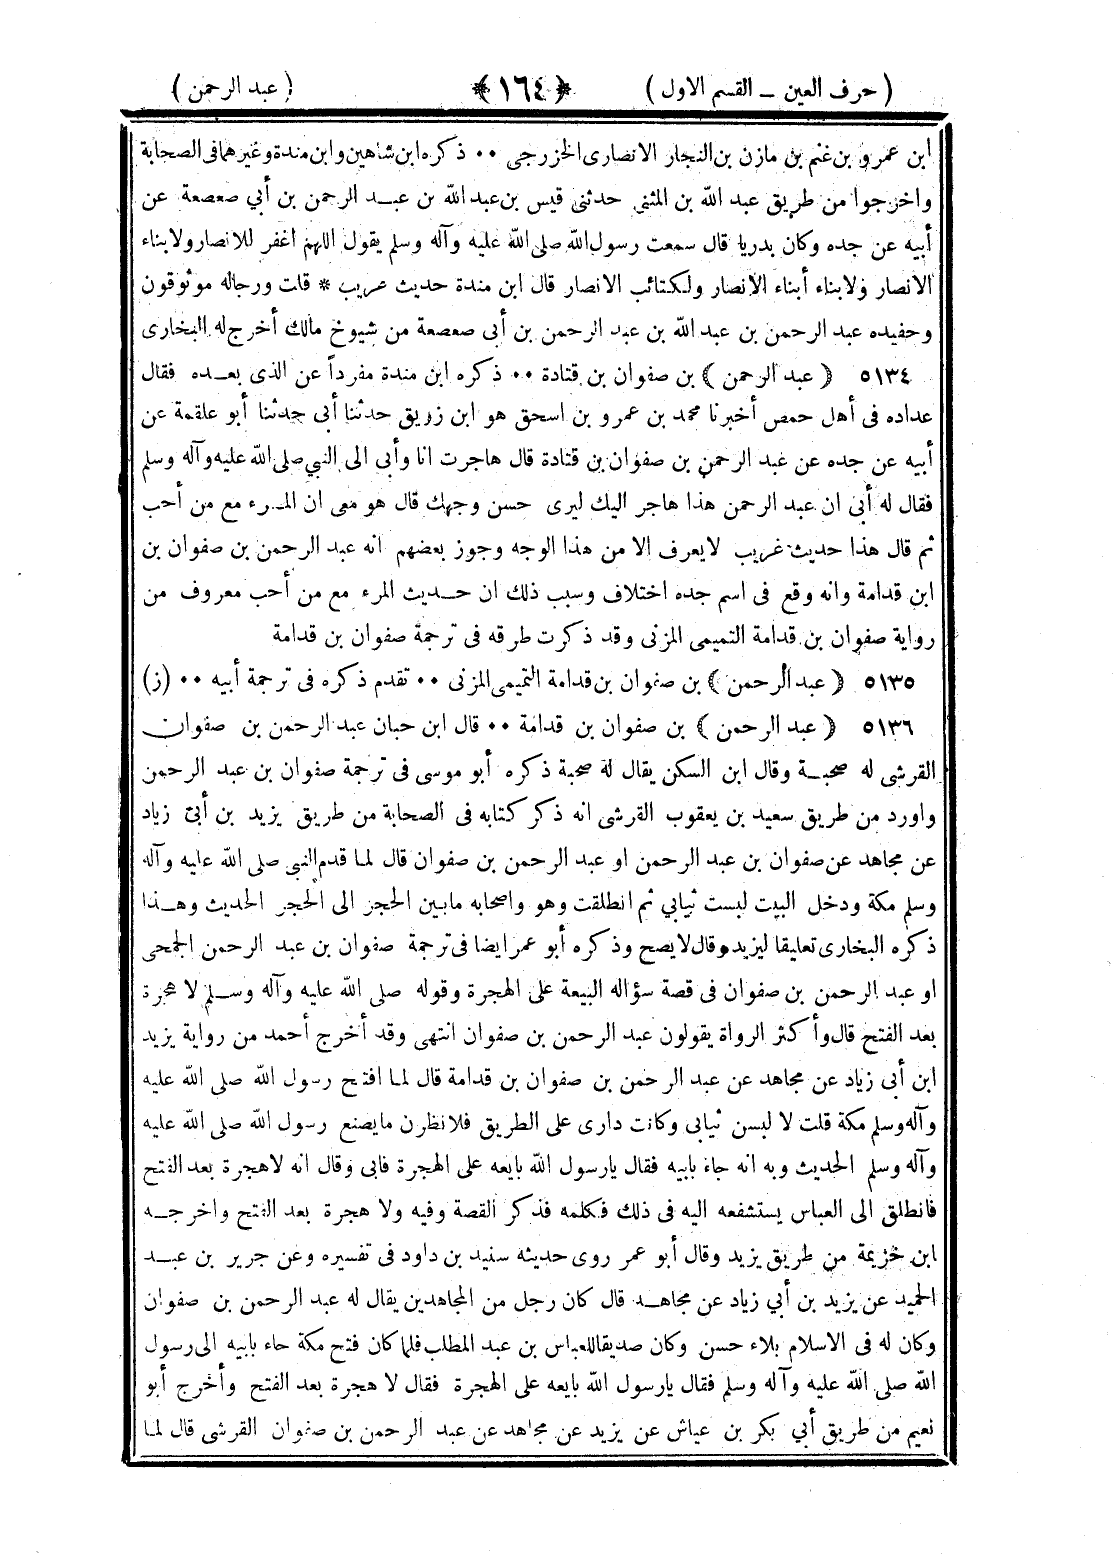 ( حرف العين – القسم الاول ) ﴿ ١٦٤ ﴾ ( عبد الرحمن )
ابن عمرو بن غنم بن مازن بن النجار الانصارى الخزرجى ٠٠ ذكره ابن شاهين وابن مندة وغيرهما فى الصحابة
واخرجوا من طريق عبد الله بن المثنى حدثنى قيس بن عبد الله بن عبد الرحمن بن أبي صعصعة عن
أبيه عن جده وكان بدريا قال سمعت رسول الله صلى الله عليه وآله وسلم يقول اللهم اغفر للانصار ولابناء
الانصار ولابناء أبناء الانصار ولكتائب الانصار قال ابن مندة حديث غريب * قلت ورجاله موثوقون
وحفيده عبد الرحمن بن عبد الله بن عبد الرحمن بن أبى صعصعة من شيوخ مالك أخرج له البخارى
٥١٣٤ ﴿ عبد الرحمن ﴾ بن صفوان بن قتادة ٠٠ ذكره ابن مندة مفرداً عن الذى بعده فقال
عداده فى أهل حمص أخبرنا محمد بن عمرو بن اسحق هو ابن زريق حدثنا أبى حدثنا أبو علقمة عن
أبيه عن جده عن عبد الرحمن بن صفوان بن قتادة قال هاجرت انا وأبى الى النبي صلى الله عليه وآله وسلم
فقال له أبى ان عبد الرحمن هذا هاجر اليك ليرى حسن وجهك قال هو معى ان المرء مع من أحب
ثم قال هذا حديث غريب لايعرف الا من هذا الوجه وجوز بعضهم انه عبد الرحمن بن صفوان بن
ابن قدامة وانه وقع فى اسم جده اختلاف وسبب ذلك ان حديث المرء مع من أحب معروف من
رواية صفوان بن قدامة التميمى المزنى وقد ذكرت طرقه فى ترجمة صفوان بن قدامة
٥١٣٥ ﴿ عبد الرحمن ﴾ بن صفوان بن قدامة التميمى المزنى ٠٠ تقدم ذكره فى ترجمة أبيه ٠٠ (ز)
٥١٣٦ ﴿ عبد الرحمن ﴾ بن صفوان بن قدامة ٠٠ قال ابن حبان عبد الرحمن بن صفوان
القرشى له صحبة وقال ابن السكن يقال له صحبة ذكره أبو موسى فى ترجمة صفوان بن عبد الرحمن
واورد من طريق سعيد بن يعقوب القرشى انه ذكر كتابه فى الصحابة من طريق يزيد بن أبى زياد
عن مجاهد عن صفوان بن عبد الرحمن او عبد الرحمن بن صفوان قال لما قدم النبى صلى الله عليه وآله
وسلم مكة ودخل البيت لبست ثيابي ثم انطلقت وهو واصحابه مابين الحجز الى الحجر الحديث وهذا
ذكره البخارى تعليقا ليزيد وقال لايصح وذكره أبو عمر ايضا فى ترجمة صفوان بن عبد الرحمن الجمحى
او عبد الرحمن بن صفوان فى قصة سؤاله البيعة على الهجرة وقوله صلى الله عليه وآله وسلم لا هجرة
بعد الفتح قال وأكثر الرواة يقولون عبد الرحمن بن صفوان انتهى وقد أخرج أحمد من رواية يزيد
ابن أبى زياد عن مجاهد عن عبد الرحمن بن صفوان بن قدامة قال لما افتح رسول الله صلى الله عليه
وآله وسلم مكة قلت لا لبسن ثيابى وكانت دارى على الطريق فلانظرن مايصنع رسول الله صلى الله عليه
وآله وسلم الحديث وبه انه جاء بابيه فقال يارسول الله بايعه على الهجرة فابى وقال انه لاهجرة بعد الفتح
فانطلق الى العباس يستشفعه اليه فى ذلك فكلمه فذكر القصة وفيه ولا هجرة بعد الفتح واخرجه
ابن خزيمة من طريق يزيد وقال أبو عمر روى حديثه سنيد بن داود فى تفسيره وعن جرير بن عبد
الحميد عن يزيد بن أبي زياد عن مجاهد قال كان رجل من المجاهدين يقال له عبد الرحمن بن صفوان
وكان له فى الاسلام بلاء حسن وكان صديقا للعباس بن عبد المطلب فلما كان فتح مكة جاء بابيه الى رسول
الله صلى الله عليه وآله وسلم فقال يارسول الله بايعه على الهجرة فقال لا هجرة بعد الفتح وأخرج أبو
نعيم من طريق أبي بكر بن عياش عن يزيد عن مجاهد عن عبد الرحمن بن صفوان القرشى قال لما